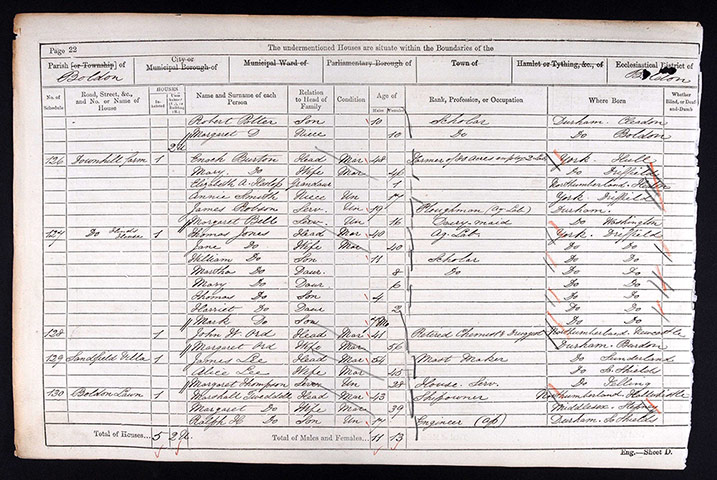 Page 22 The undermentioned Houses are situate within the Boundaries of the
Parish [or Township] of City or Municipal Borough of Municipal Ward of Parliamentary Borough of Town of Hamlet or Tything, &c., of Ecclesiastical District of
Boldon Boldon
No. of Schedule Road, Street, &c., and No. or Name of House HOUSES Inhabited Name and Surname of each Person Relation to Head of Family Condition Age of Males Females Rank, Profession, or Occupation Where Born Whether Blind, or Deaf-and-Dumb
Robert Potter Son 10 Scholar Durham. Cleadon
Margaret Do Niece 10 Do Do Boldon
2 U
126 Downhill farm 1 Enoch Burton Head Mar 48 Farmer of acres York. Hull
Mary Do Wife Mar 46 Do Driffield
Elizabeth A. Grandaur 1 Northumberland
Annie Smith Niece Un 17 York. Driffield
James Robson Serv. Un 19 Ploughman (Ag. Lab.) Durham.
Margaret Bell Serv. Un 16 Dairy-maid Do Washington
127 Do 1 Thomas Jones Head Mar 40 Ag. Lab. York. Driffield
Jane Do Wife Mar 40 Do Do
William Do Son 11 Scholar Do Do
Martha Do Daur. 8 Do Do Do
Mary Do Daur 6 Do Do
Thomas Do Son 4 Do Do
Harriet Do Daur 2 Do Do
Mark Do Son Do Do
128 1 John W. Ord Head Mar 41 Retired Chemist & Druggist Northumberland. Newcastle
Margaret Ord Wife Mar 36 Durham.
129 Sandfield Villa 1 James Lee Head Mar 54 Mast Maker Do Sunderland
Alice Lee Wife Mar 45 Do So. Shields
Margaret Thompson Serv. Un 28 House. Serv. Do Felling
130 Boldon Lawn 1 Marshall Head Mar 43 Shipowner Northumberland.
Margaret Do Wife Mar 39 Middlesex.
Ralph H. Do Son Un 17 Engineer (Ap) Durham. So Shields
Total of Houses... 5 2 U. Total of Males and Females... 11 13
Eng.—Sheet D.